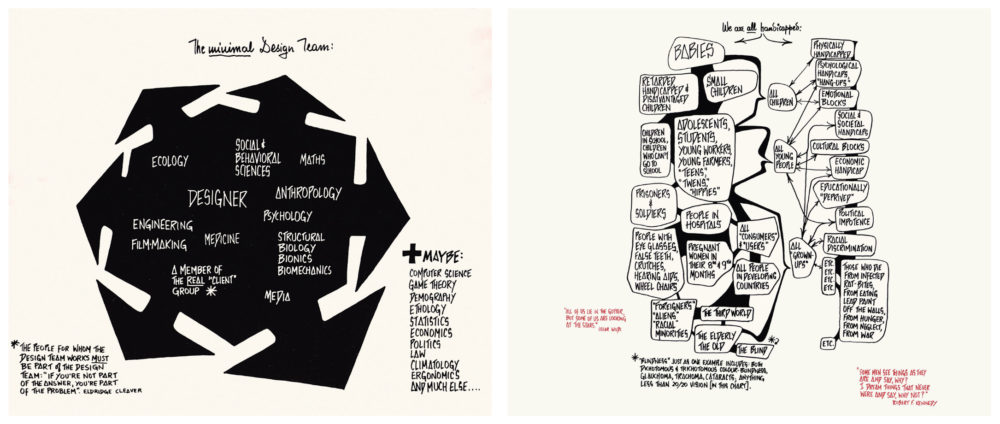 The minimal Design Team:
ECOLOGY
SOCIAL &
BEHAVIORAL
SCIENCES
MATHS
DESIGNER
ANTHROPOLOGY
PSYCHOLOGY
ENGINEERING
FILM-MAKING
MEDICINE
STRUCTURAL
BIOLOGY
BIONICS
BIOMECHANICS
A MEMBER OF
THE REAL "CLIENT"
GROUP *
MEDIA
+ MAYBE:
COMPUTER SCIENCE
GAME THEORY
DEMOGRAPHY
ETHOLOGY
STATISTICS
ECONOMICS
POLITICS
LAW
CLIMATOLOGY
ERGONOMICS
AND MUCH ELSE....
* THE PEOPLE FOR WHOM THE
DESIGN TEAM WORKS MUST
BE PART OF THE DESIGN
TEAM: "IF YOU'RE NOT PART
OF THE ANSWER, YOU'RE PART
OF THE PROBLEM". ELDRIDGE CLEAVER
We are all handicapped:
BABIES
RETARDED
HANDICAPPED &
DISADVANTAGED
CHILDREN
SMALL
CHILDREN
CHILDREN
IN SCHOOL,
CHILDREN
WHO CAN'T
GO TO
SCHOOL
ADOLESCENTS,
STUDENTS,
YOUNG WORKERS,
YOUNG FARMERS,
"TEENS",
"TWENS",
"HIPPIES"
PRISONERS
&
SOLDIERS
PEOPLE IN
HOSPITALS
PEOPLE WITH
EYE GLASSES,
FALSE TEETH,
CRUTCHES,
HEARING AIDS,
WHEEL CHAIRS
PREGNANT
WOMEN IN
THEIR 8th & 9th
MONTHS
ALL
"CONSUMERS"
& "USERS"
ALL PEOPLE
IN DEVELOPING
COUNTRIES
"FOREIGNERS"
"ALIENS"
"RACIAL
MINORITIES"
THE THIRD WORLD
THE ELDERLY
THE OLD
THE BLIND
*?
ALL
CHILDREN
ALL
YOUNG
PEOPLE
ALL
"GROWN-
UPS"
PHYSICALLY
HANDICAPPED
PSYCHOLOGICAL
HANDICAPS,
"HANG-UPS"
EMOTIONAL
BLOCKS
SOCIAL &
SOCIETAL
HANDICAPS
CULTURAL BLOCKS
ECONOMIC
HANDICAP
EDUCATIONALLY
"DEPRIVED"
POLITICAL
IMPOTENCE
RACIAL
DISCRIMINATION
ETC.
ETC.
ETC.
ETC.
THOSE WHO DIE
FROM INFECTED
RAT-BITES,
FROM EATING
LEAD PAINT
OFF THE WALLS,
FROM HUNGER,
FROM NEGLECT,
FROM WAR
ETC.
"ALL OF US LIE IN THE GUTTER,
BUT SOME OF US ARE LOOKING
AT THE STARS"
OSCAR WILDE
* "BLINDNESS" JUST AS ONE EXAMPLE INCLUDES BOTH
DICHOTOMOUS & TRICHOTOMOUS COLOUR-BLINDNESS,
GLAUCHOMA, TRACHOMA, CATARACTS, ANYTHING
LESS THAN 20/20 VISION [IN THIS CHART].
"SOME MEN SEE THINGS AS THEY
ARE AND SAY, WHY?
I DREAM THINGS THAT NEVER
WERE AND SAY, WHY NOT?"
ROBERT F. KENNEDY